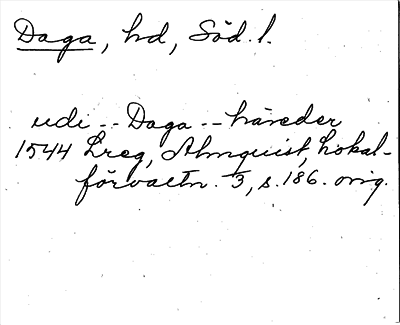 Daga, hd, Söd. l.
udi -- Daga -- häreder
1544 Lreg, Almquist, Lokal-
förvaltn. 3, s. 186. orig.